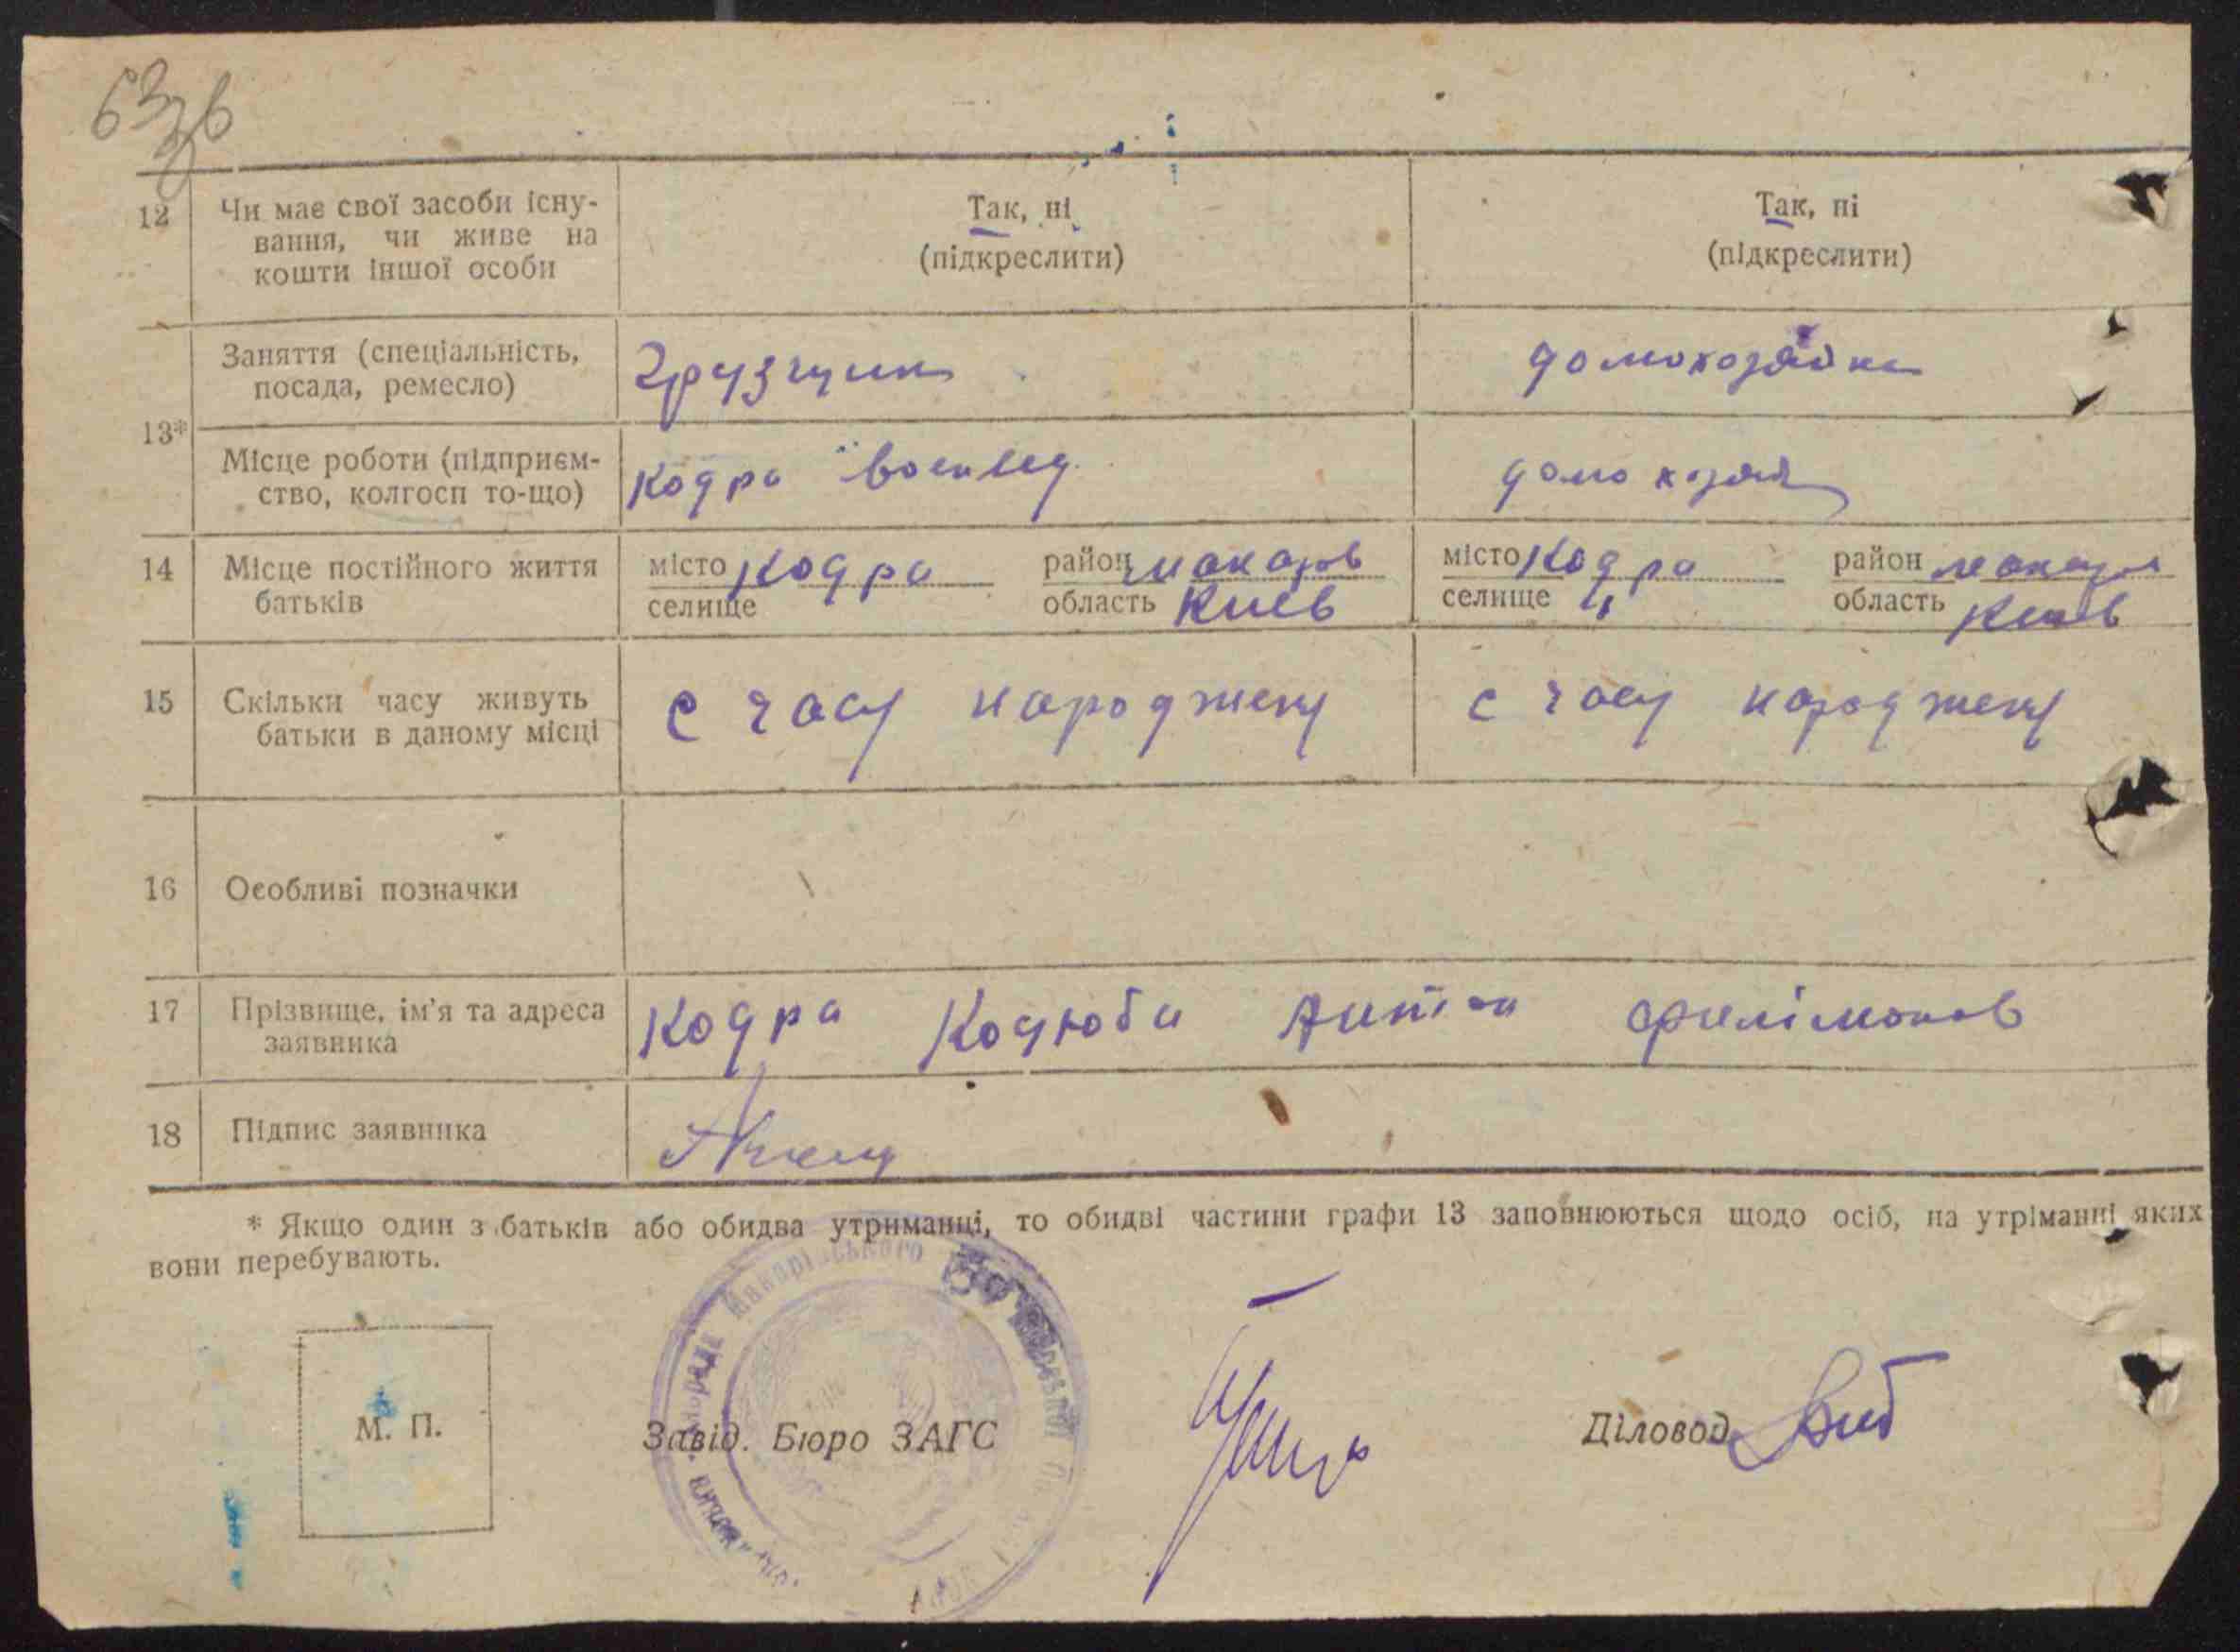 12 Чи має свої засоби існу-
вання, чи живе на
кошти іншої особи
Так, ні
(підкреслити)
Так, ні
(підкреслити)
13*
Заняття (спеціальність,
посада, ремесло)
Грузчик
домохозяйка
Місце роботи (підприєм-
ство, колгосп то-що)
Кодра военвед.
домохозяй
14 Місце постійного життя
батьків
місто Кодра район Макаров
селище область Киев
місто Кодра район Макаров
селище область Киев
15 Скільки часу живуть
батьки в даному місці
с часу народжену
с часу народжену
16 Особливі позначки
17 Прізвище, ім'я та адреса
заявника
Кодра Коцюба Антон Філімонов
18 Підпис заявника
* Якщо один з батьків або обидва утриманці, то обидві частини графи 13 заповнюються щодо осіб, на утріманні яких
вони перебувають.
М. П.
Завід. Бюро ЗАГС
Діловод